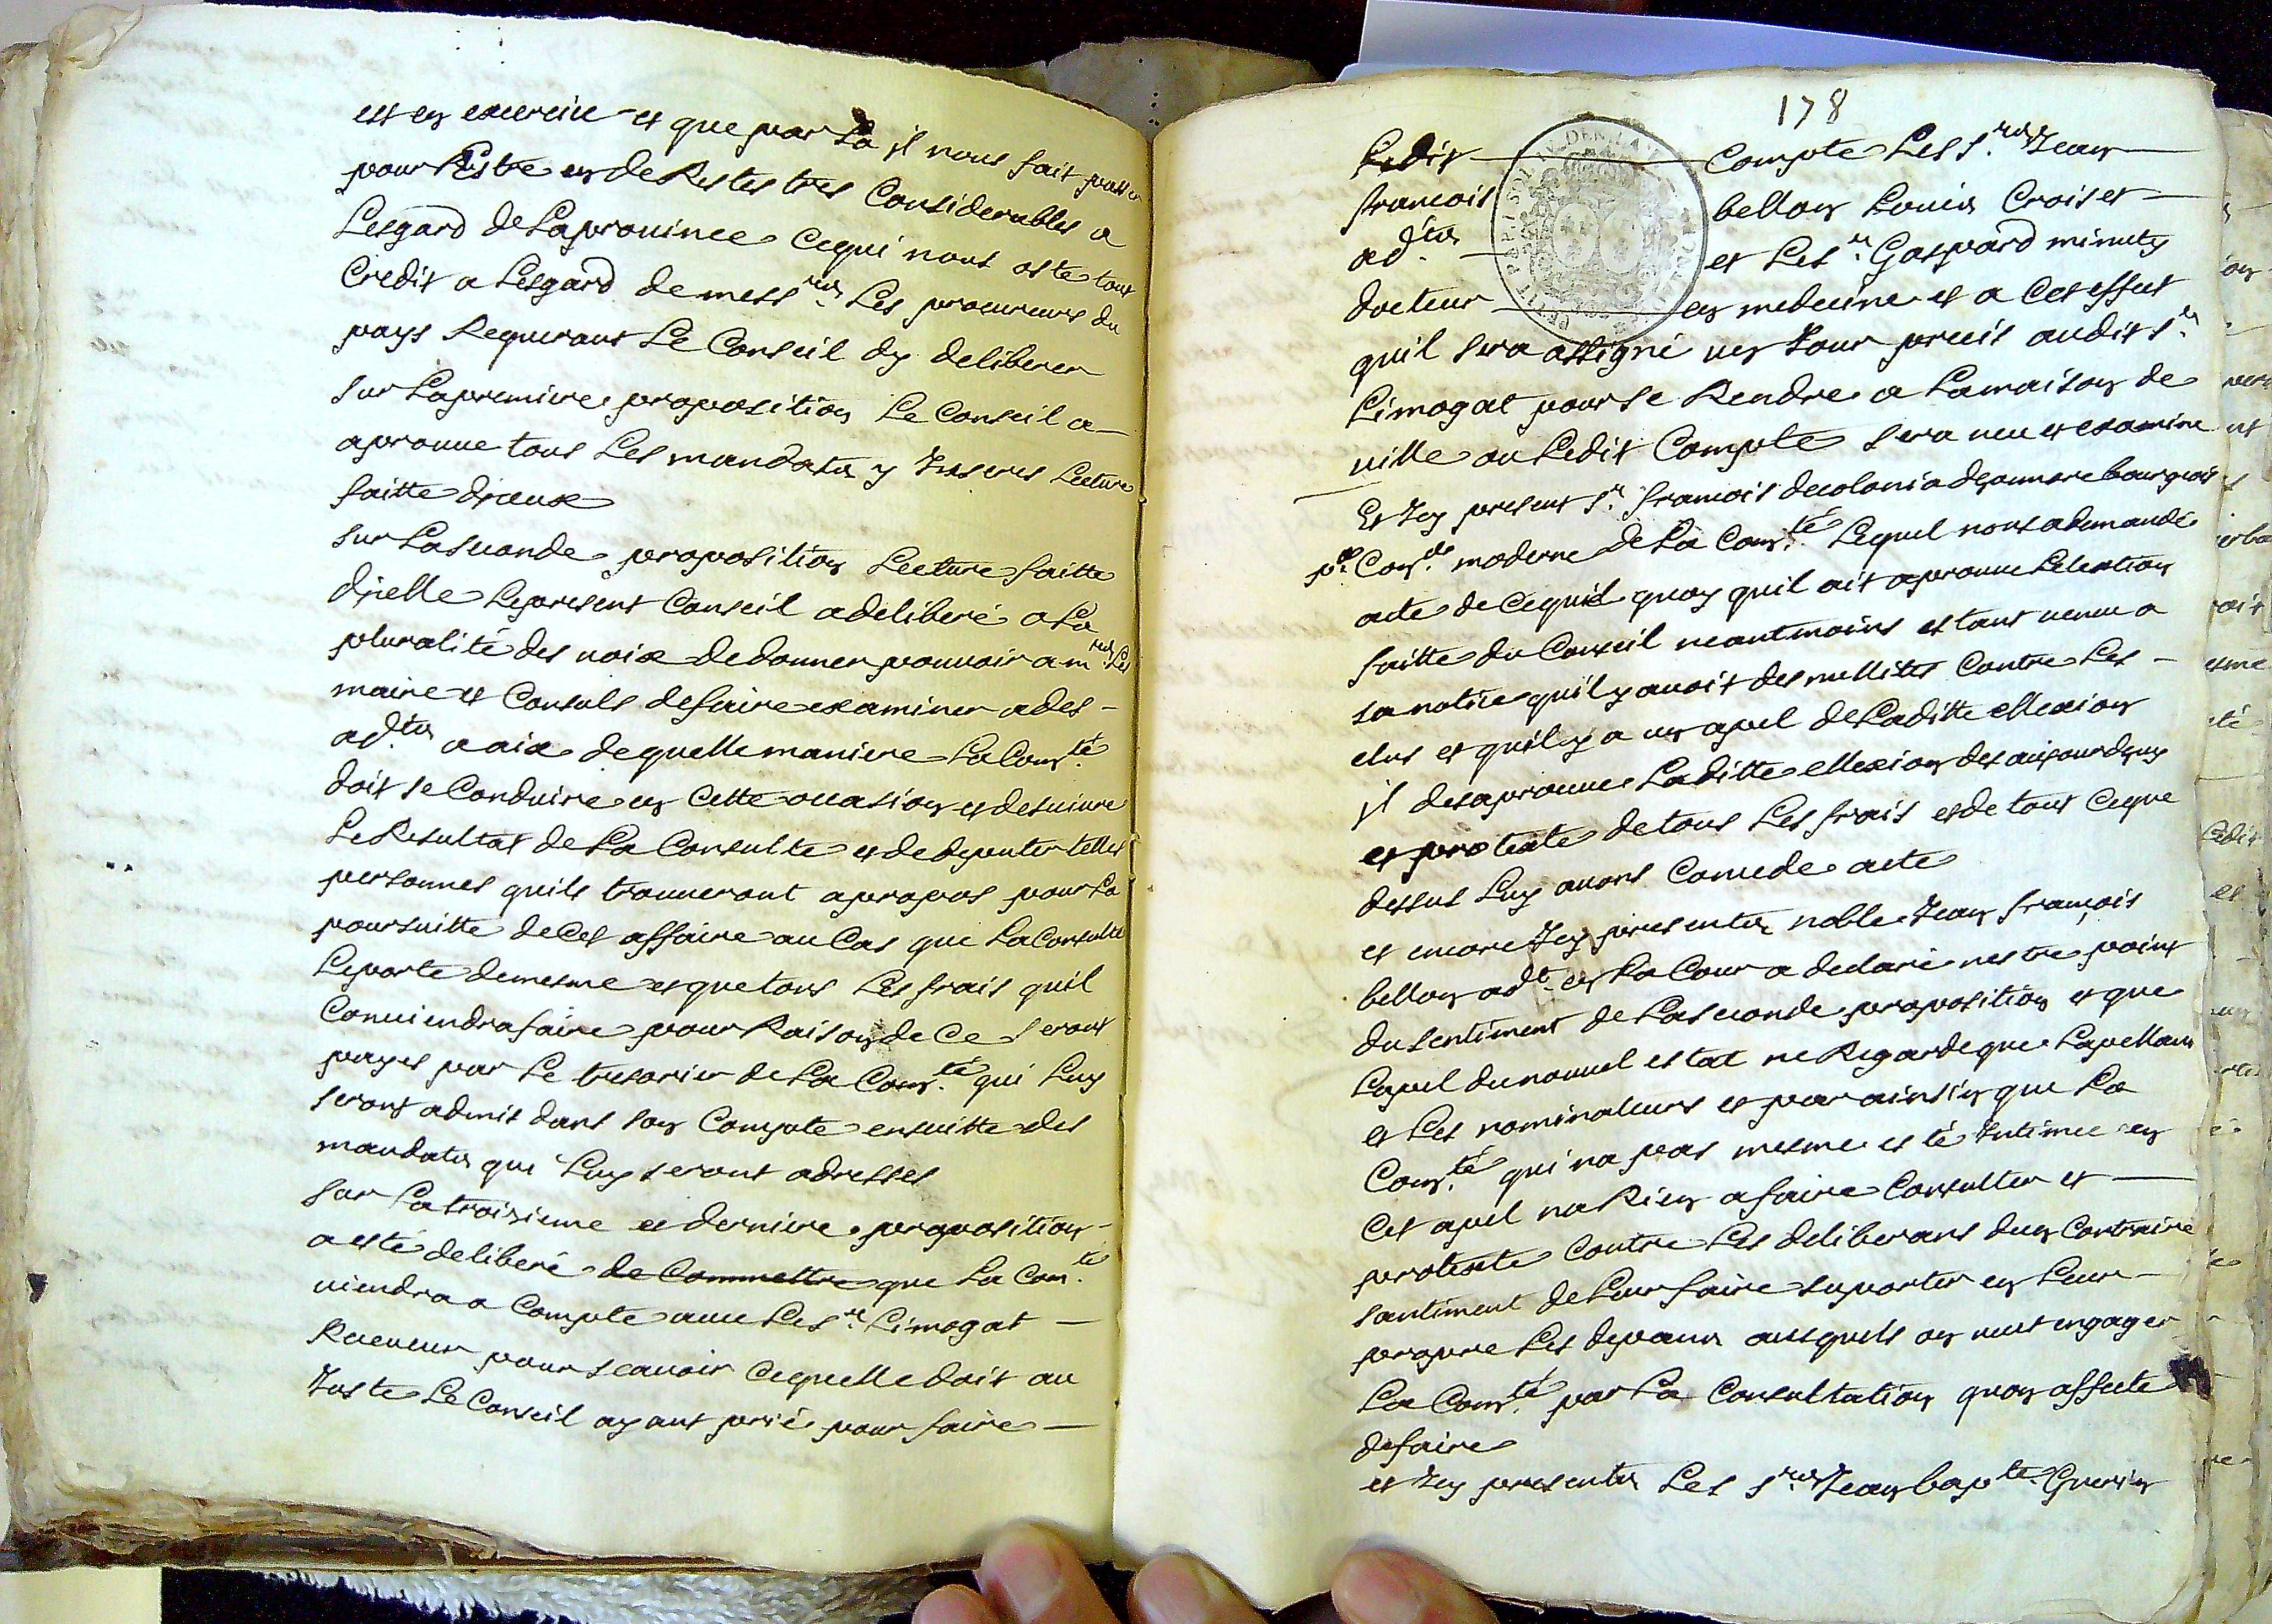 est en exercice et que par La il nous fait passer
pour Estre en de Restes tres Considerables a
Lesgard de La prouince Ce qui nous oste tout
Credit a Lesgard de mess.rs Les procureurs du
pays Requerant Le Conseil dy deliberer
sur La premiere proposition Le Conseil a
aprouue tous Les mandats y Inseres Lecture
faitte dJceux
sur La seconde proposition Lecture faitte
dJcelle Le present Conseil a deliberé a La
pluralité des uoix de donner pouuoir a m.rs Les
maire et Consuls de faire examiner a des
ad.ts a aix de quelle maniere La Com.té
doit se Conduire en Cette occasion et de suiure
Le Resultat de La Consulte et de deputer telles
personnes quils trouueront a propos pour La
poursuitte de Cet affaire au Cas que La Consulte
Le porte de mesme et que tous Les frais quil
Conuiendra faire pour Raison de Ce seront
payes par Le tresorier de La Com.té qui Luy
seront admis dans son Compte ensuitte des
mandats qui Luy seront adresses
sur La troisieme et derniere proposition
a esté deliberé de Commettre que La Com.té
uiendra a Compte auec Le s.r Limogat
Receueur pour scauoir Ce quelle doit au
Juste Le Conseil ayant prié pour faire
178
Ledit Compte Les s.rs Jean
francois bellon Louis Croiset
ad.ts et Le s.r Gaspard minuty
docteur en medecine et a Cet effect
quil sera assigné un Jour precis audit s.r
Limogat pour se Rendre a La maison de
uille ou Ledit Compte sera ueu et examine
Et Jcy present s.r francois de colonia bourgeois
p.r Con.l moderne de La Com.té Lequel nous a demandé
acte de Ce que quoy quil ait aprouue Lelection
faitte du Conseil neantmoins estant uenu a
sa notice quil y auoit des nullites Contre Les
elus et quil y a un apel de Laditte ellexion
il desaprouue Laditte ellexion des aujourdhuy
et proteste de tous Les frais et de tout Ceque
dessus Luy auons Concede acte
et encore Jcy presents noble Jean françois
bellon ad.t en La Cour a declaré nestre point
du sentiment de La seconde proposition et que
Lapel du nouuel estat ne Regarde que Lapellant
et Les nominateurs et par ainsin que La
Com.té qui na pas mesme esté Intimee en
Cet apel na Rien a faire Consulter et
proteste Contre Les deliberans dun Contraire
santiment de Leur faire suporter en Leur
propre Les depans ausquels on ueut engager
La Com.té par La Consultation quon affecte
de faire
et Jcy presents Les s.rs Jean bap.te Guerin